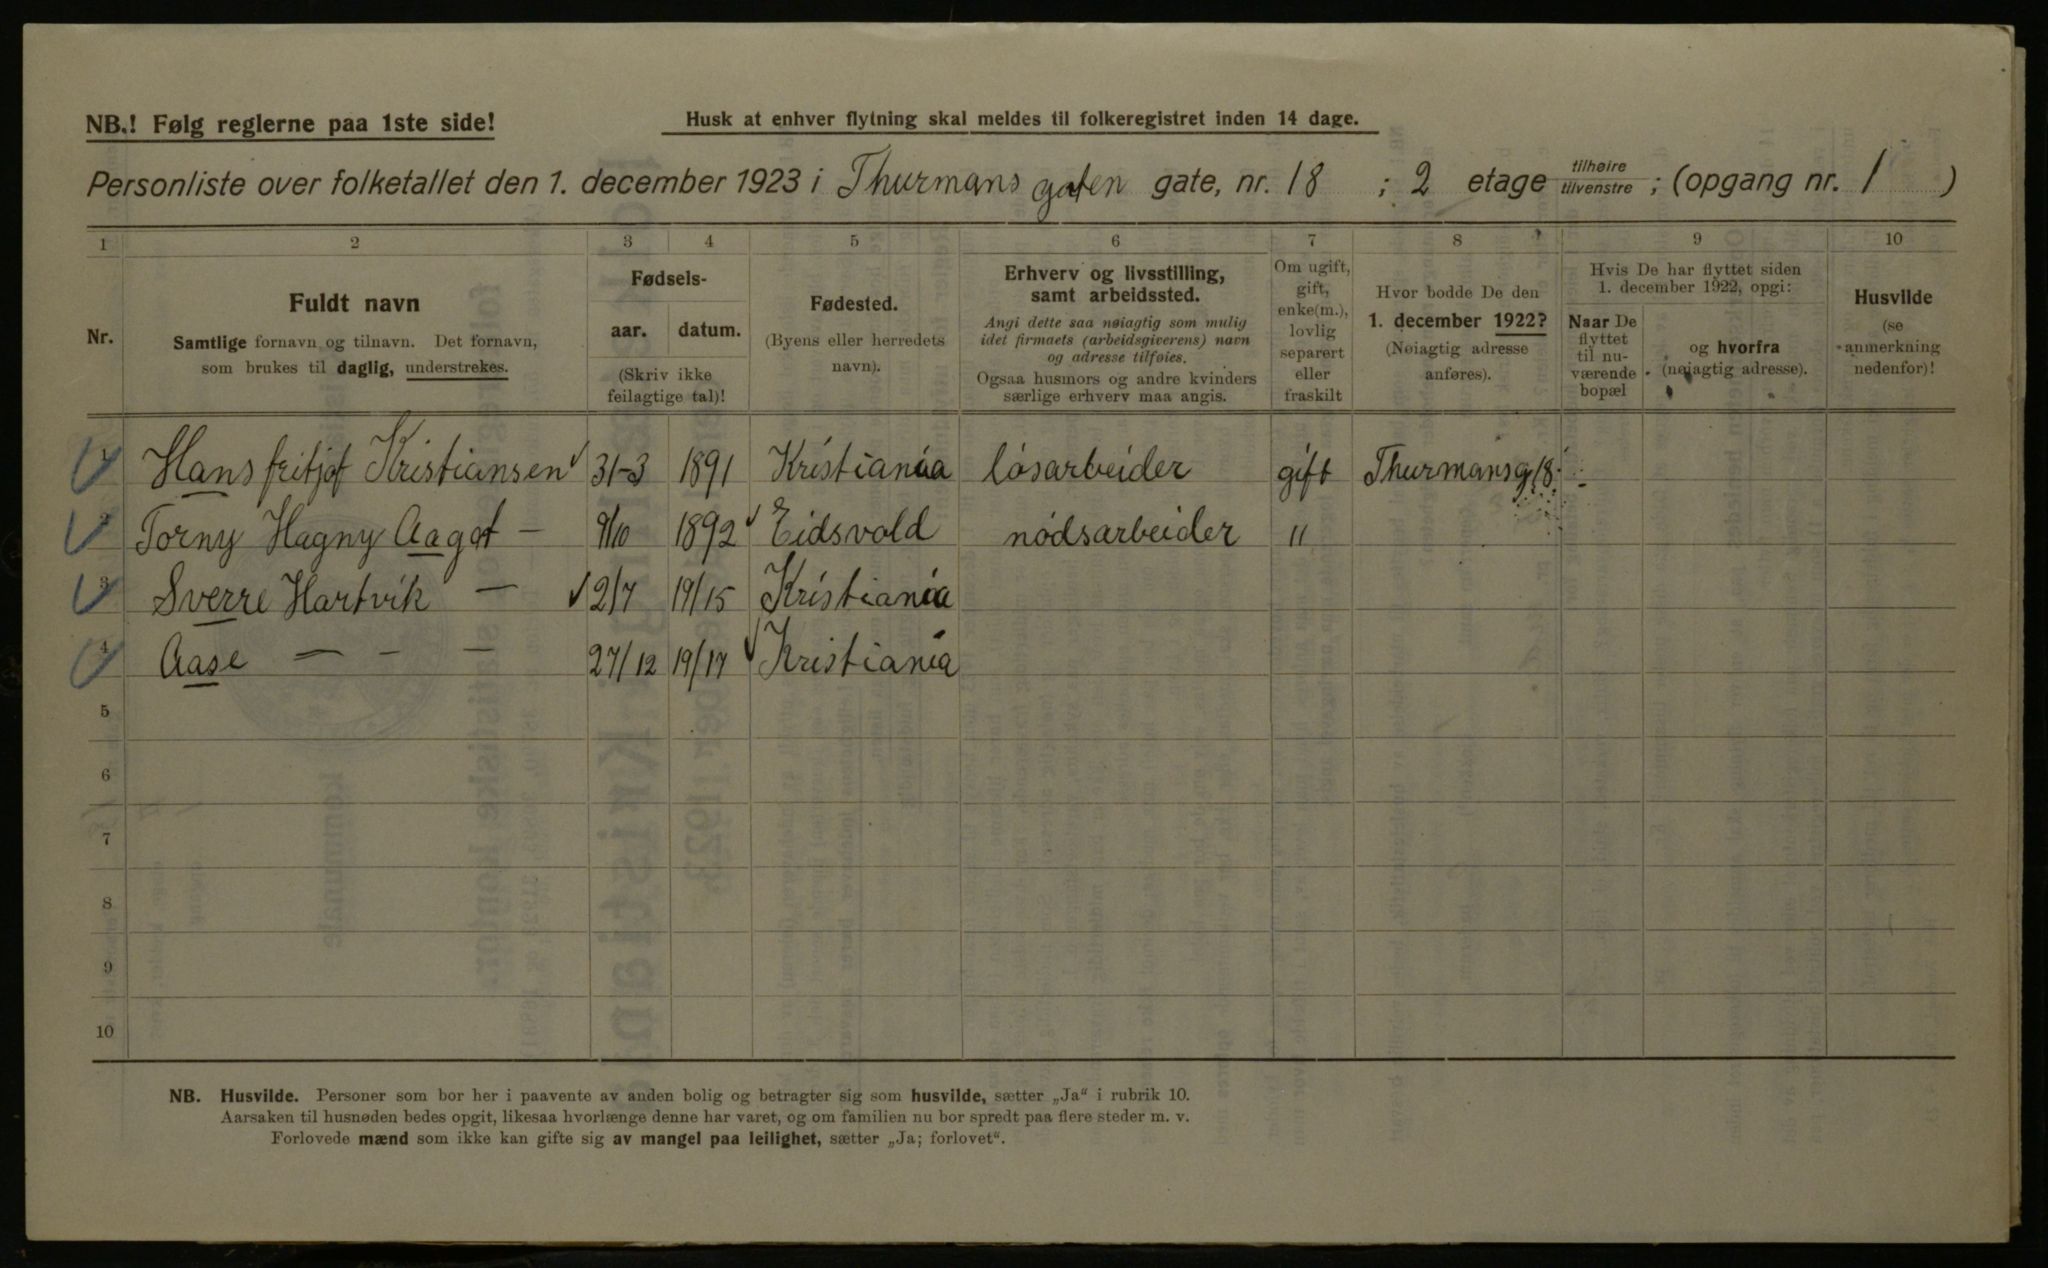 NB.! Følg reglerne paa 1ste side!
Husk at enhver flytning skal meldes til folkeregistret inden 14 dage.
Personliste over folketallet den 1. december 1923 i Thurmans gaten gate, nr. 18 ; 2 etage tilhøire tilvenstre ; (opgang nr. 1 )
1 2 3 4 5 6 7 8 9 10
Nr.
Fuldt navn
Samtlige fornavn og tilnavn. Det fornavn,
som brukes til daglig, understrekes.
Fødsels-
aar. datum.
(Skriv ikke
feilagtige tal)!
Fødested.
(Byens eller herredets
navn).
Erhverv og livsstilling,
samt arbeidssted.
Angi dette saa nøiagtig som mulig
idet firmaets (arbeidsgiverens) navn
og adresse tilføies.
Ogsaa husmors og andre kvinders
særlige erhverv maa angis.
Om ugift,
gift,
enke(m.),
lovlig
separert
eller
fraskilt
Hvor bodde De den
1. december 1922?
(Nøiagtig adresse
anføres).
Hvis De har flyttet siden
1. december 1922, opgi:
Naar De
flyttet
til nu-
værende
bopæl
og hvorfra
(nøiagtig adresse).
Husvilde
(se
anmerkning
nedenfor)!
1 Hans fritjof Kristiansen 31-3 1891 Kristiania løsarbeider gift Thurmansg 18
2 Torny Hagny Aagot — 9/10 1892 Eidsvold nødsarbeider "
3 Sverre Hartvik — 2/7 19/15 Kristiania
4 Aase — - — 27/12 19/17 Kristiania
5
6
7
8
9
10
NB. Husvilde. Personer som bor her i paavente av anden bolig og betragter sig som husvilde, sætter „Ja“ i rubrik 10.
Aarsaken til husnøden bedes opgit, likesaa hvorlænge denne har varet, og om familien nu bor spredt paa flere steder m. v.
Forlovede mænd som ikke kan gifte sig av mangel paa leilighet, sætter „Ja; forlovet“.